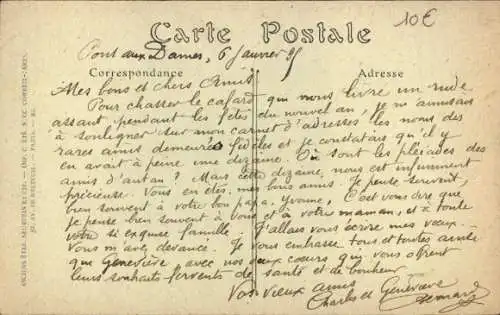 Carte Postale
10€
Pont aux Dames, 6 Janvier
Correspondance
Adresse
Mes bons et chers Amis
Pour chasser le cafard qui nous livre un rude
assaut pendant les fêtes du nouvel an, je m'amusais
à souligner sur mon carnet d'adresses les noms des
rares amis demeurés fidèles et je constatais qu'il y
en avait à peine une dizaine. Où sont les pléiades des
amis d'autan ? Mais cette dizaine, nous est infiniment
précieuse. Vous en êtes, mes bons amis. Je pense souvent,
bien souvent à votre bon papa, Yvonne, C'est vous dire que
je pense bien souvent à vous et à votre maman, et à toute
votre si exquise famille. J'allais vous écrire mes vœux.
Vous m'avez devancé. Je vous embrasse tous et toutes ainsi
que Geneviève avec nos deux cœurs qui vous offrent
leurs souhaits fervents de santé et de bonheur
Vos vieux amis
Charles et Geneviève